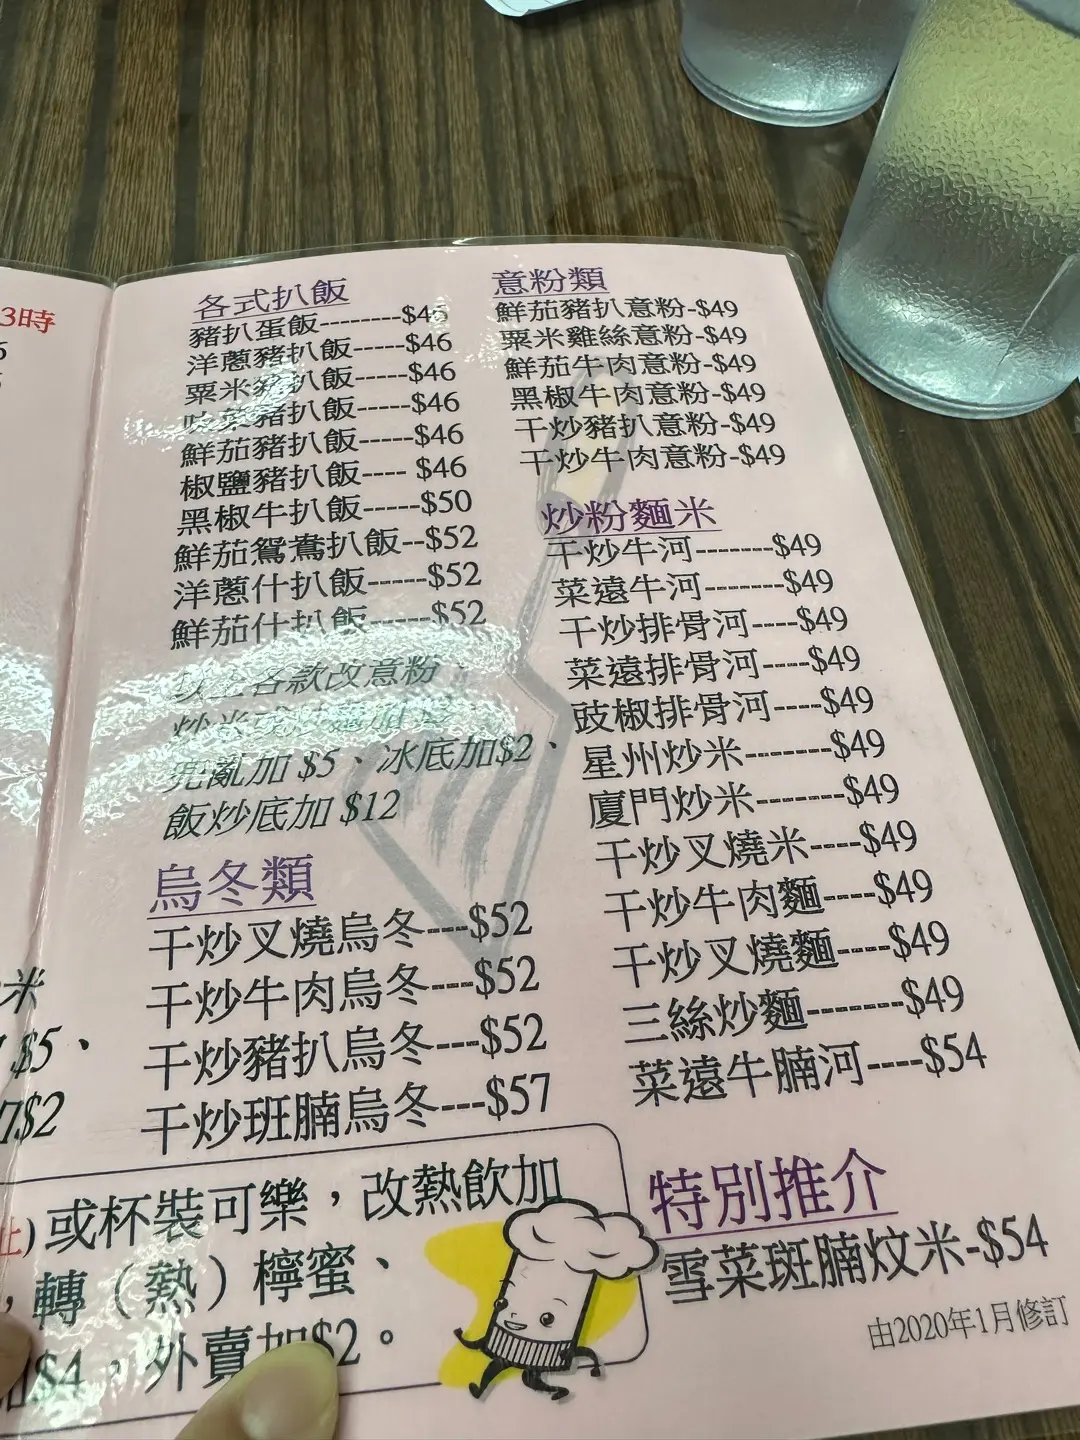 3時
各式扒飯
豬扒蛋飯--------$46
洋蔥豬扒飯-----$46
粟米豬扒飯-----$46
豬扒飯-----$46
鮮茄豬扒飯-----$46
椒鹽豬扒飯---- $46
黑椒牛扒飯-----$50
鮮茄鴛鴦扒飯--$52
洋蔥什扒飯-----$52
鮮茄什扒飯-----$52
以上各款改意粉、
炒米或
兜亂加 $5、冰底加$2、
飯炒底加 $12
烏冬類
干炒叉燒烏冬---$52
干炒牛肉烏冬---$52
干炒豬扒烏冬---$52
干炒班腩烏冬---$57
意粉類
鮮茄豬扒意粉-$49
粟米雞絲意粉-$49
鮮茄牛肉意粉-$49
黑椒牛肉意粉-$49
干炒豬扒意粉-$49
干炒牛肉意粉-$49
炒粉麵米
干炒牛河--------$49
菜遠牛河--------$49
干炒排骨河----$49
菜遠排骨河----$49
豉椒排骨河----$49
星州炒米-------$49
廈門炒米-------$49
干炒叉燒米----$49
干炒牛肉麵----$49
干炒叉燒麵----$49
三絲炒麵-------$49
菜遠牛腩河----$54
特別推介
雪菜斑腩炆米-$54
由2020年1月修訂
米
$5、
$2
止)或杯裝可樂，改熱飲加
，轉（熱）檸蜜、
加$4，外賣加$2。